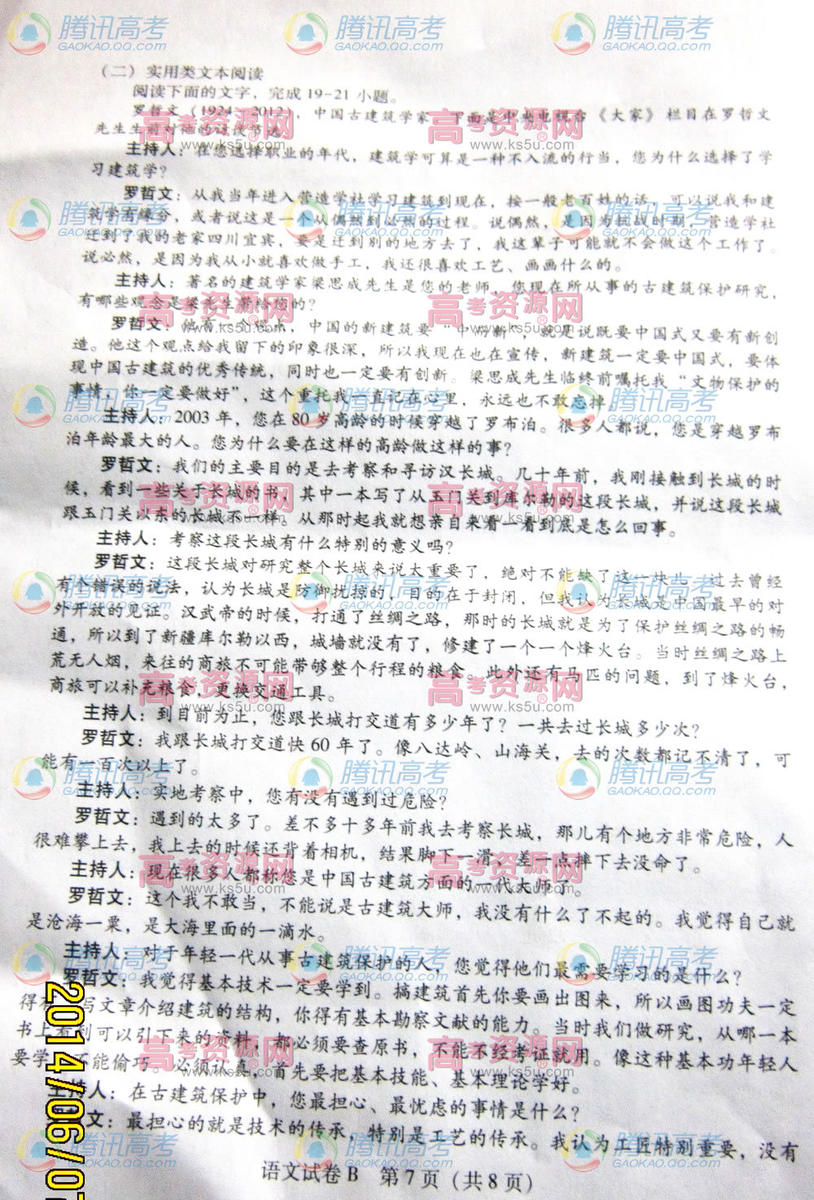 腾讯高考 腾讯高考 腾讯高考
GAOKAO.QQ.COM GAOKAO.QQ.COM GAOKAO.QQ.COM
（二）实用类文本阅读
阅读下面的文字，完成19-21小题。
罗哲文（1924—2012），中国古建筑学家。下面是中央电视台《大家》栏目在罗哲文
先生生前对他的访谈节选。
主持人：在您选择职业的年代，建筑学可算是一种不入流的行当，您为什么选择了学
习建筑学？
罗哲文：从我当年进入营造学社学习建筑到现在，按一般老百姓的话，可以说我和建
筑学有缘分，或者说这是一个从偶然到必然的过程。说偶然，是因为抗战时期，营造学社
迁到了我的老家四川宜宾，要是迁到别的地方去了，我这辈子可能就不会做这个工作了。
说必然，是因为我从小就喜欢做手工，我还很喜欢工艺、画画什么的。
主持人：著名的建筑学家梁思成先生是您的老师，您现在所从事的古建筑保护研究，
有哪些观念是梁先生带给您的？
罗哲文：他有一个观点，中国的新建筑要“中而新”，就是说既要中国式又要有新创
造。他这个观点给我留下的印象很深，所以我现在也在宣传，新建筑一定要中国式，要体
现中国古建筑的优秀传统，同时也一定要有创新。梁思成先生临终前嘱托我“文物保护的
事情，你一定要做好”，这个重托我一直记在心里，永远也不敢忘掉。
主持人：2003年，您在80岁高龄的时候穿越了罗布泊。很多人都说，您是穿越罗布
泊年龄最大的人。您为什么要在这样的高龄做这样的事？
罗哲文：我们的主要目的是去考察和寻访汉长城。几十年前，我刚接触到长城的时
候，看到一些关于长城的书，其中一本写了从玉门关到库尔勒的这段长城，并说这段长城
跟玉门关以东的长城不一样。从那时起我就想亲自来看一看到底是怎么回事。
主持人：考察这段长城有什么特别的意义吗？
罗哲文：这段长城对研究整个长城来说太重要了，绝对不能缺了这一块。过去曾经
有个错误的说法，认为长城是防御扰掠的，目的在于封闭，但我认为长城是中国最早的对
外开放的见证。汉武帝的时候，打通了丝绸之路，那时的长城就是为了保护丝绸之路的畅
通，所以到了新疆库尔勒以西，城墙就没有了，修建了一个一个烽火台。当时丝绸之路上
荒无人烟，来往的商旅不可能带够整个行程的粮食。此外还有马匹的问题，到了烽火台，
商旅可以补充粮食，更换交通工具。
主持人：到目前为止，您跟长城打交道有多少年了？一共去过长城多少次？
罗哲文：我跟长城打交道快60年了。像八达岭、山海关，去的次数都记不清了，可
能有一百次以上了。
主持人：实地考察中，您有没有遇到过危险？
罗哲文：遇到的太多了。差不多十多年前我去考察长城，那儿有个地方非常危险，人
很难攀上去，我上去的时候还背着相机，结果脚下一滑，差一点摔下去没命了。
主持人：现在很多人都称您是中国古建筑方面的一代大师了。
罗哲文：这个我不敢当，不能说是古建筑大师，我没有什么了不起的。我觉得自己就
是沧海一粟，是大海里面的一滴水。
主持人：对于年轻一代从事古建筑保护的人，您觉得他们最需要学习的是什么？
罗哲文：我觉得基本技术一定要学到。搞建筑首先你要画出图来，所以画图功夫一定
得 写文章介绍建筑的结构，你得有基本勘察文献的能力。当时我们做研究，从哪一本
书上看到可以引下来的资料，都必须要查原书，不能不经考证就用。像这种基本功年轻人
要学，不能偷巧，必须认真，首先要把基本技能、基本理论学好。
主持人：在古建筑保护中，您最担心、最忧虑的事情是什么？
罗哲文：最担心的就是技术的传承，特别是工艺的传承。我认为工匠特别重要，没有
语文试卷B 第7页（共8页）
高考资源网
www.ks5u.com
2014/06/07